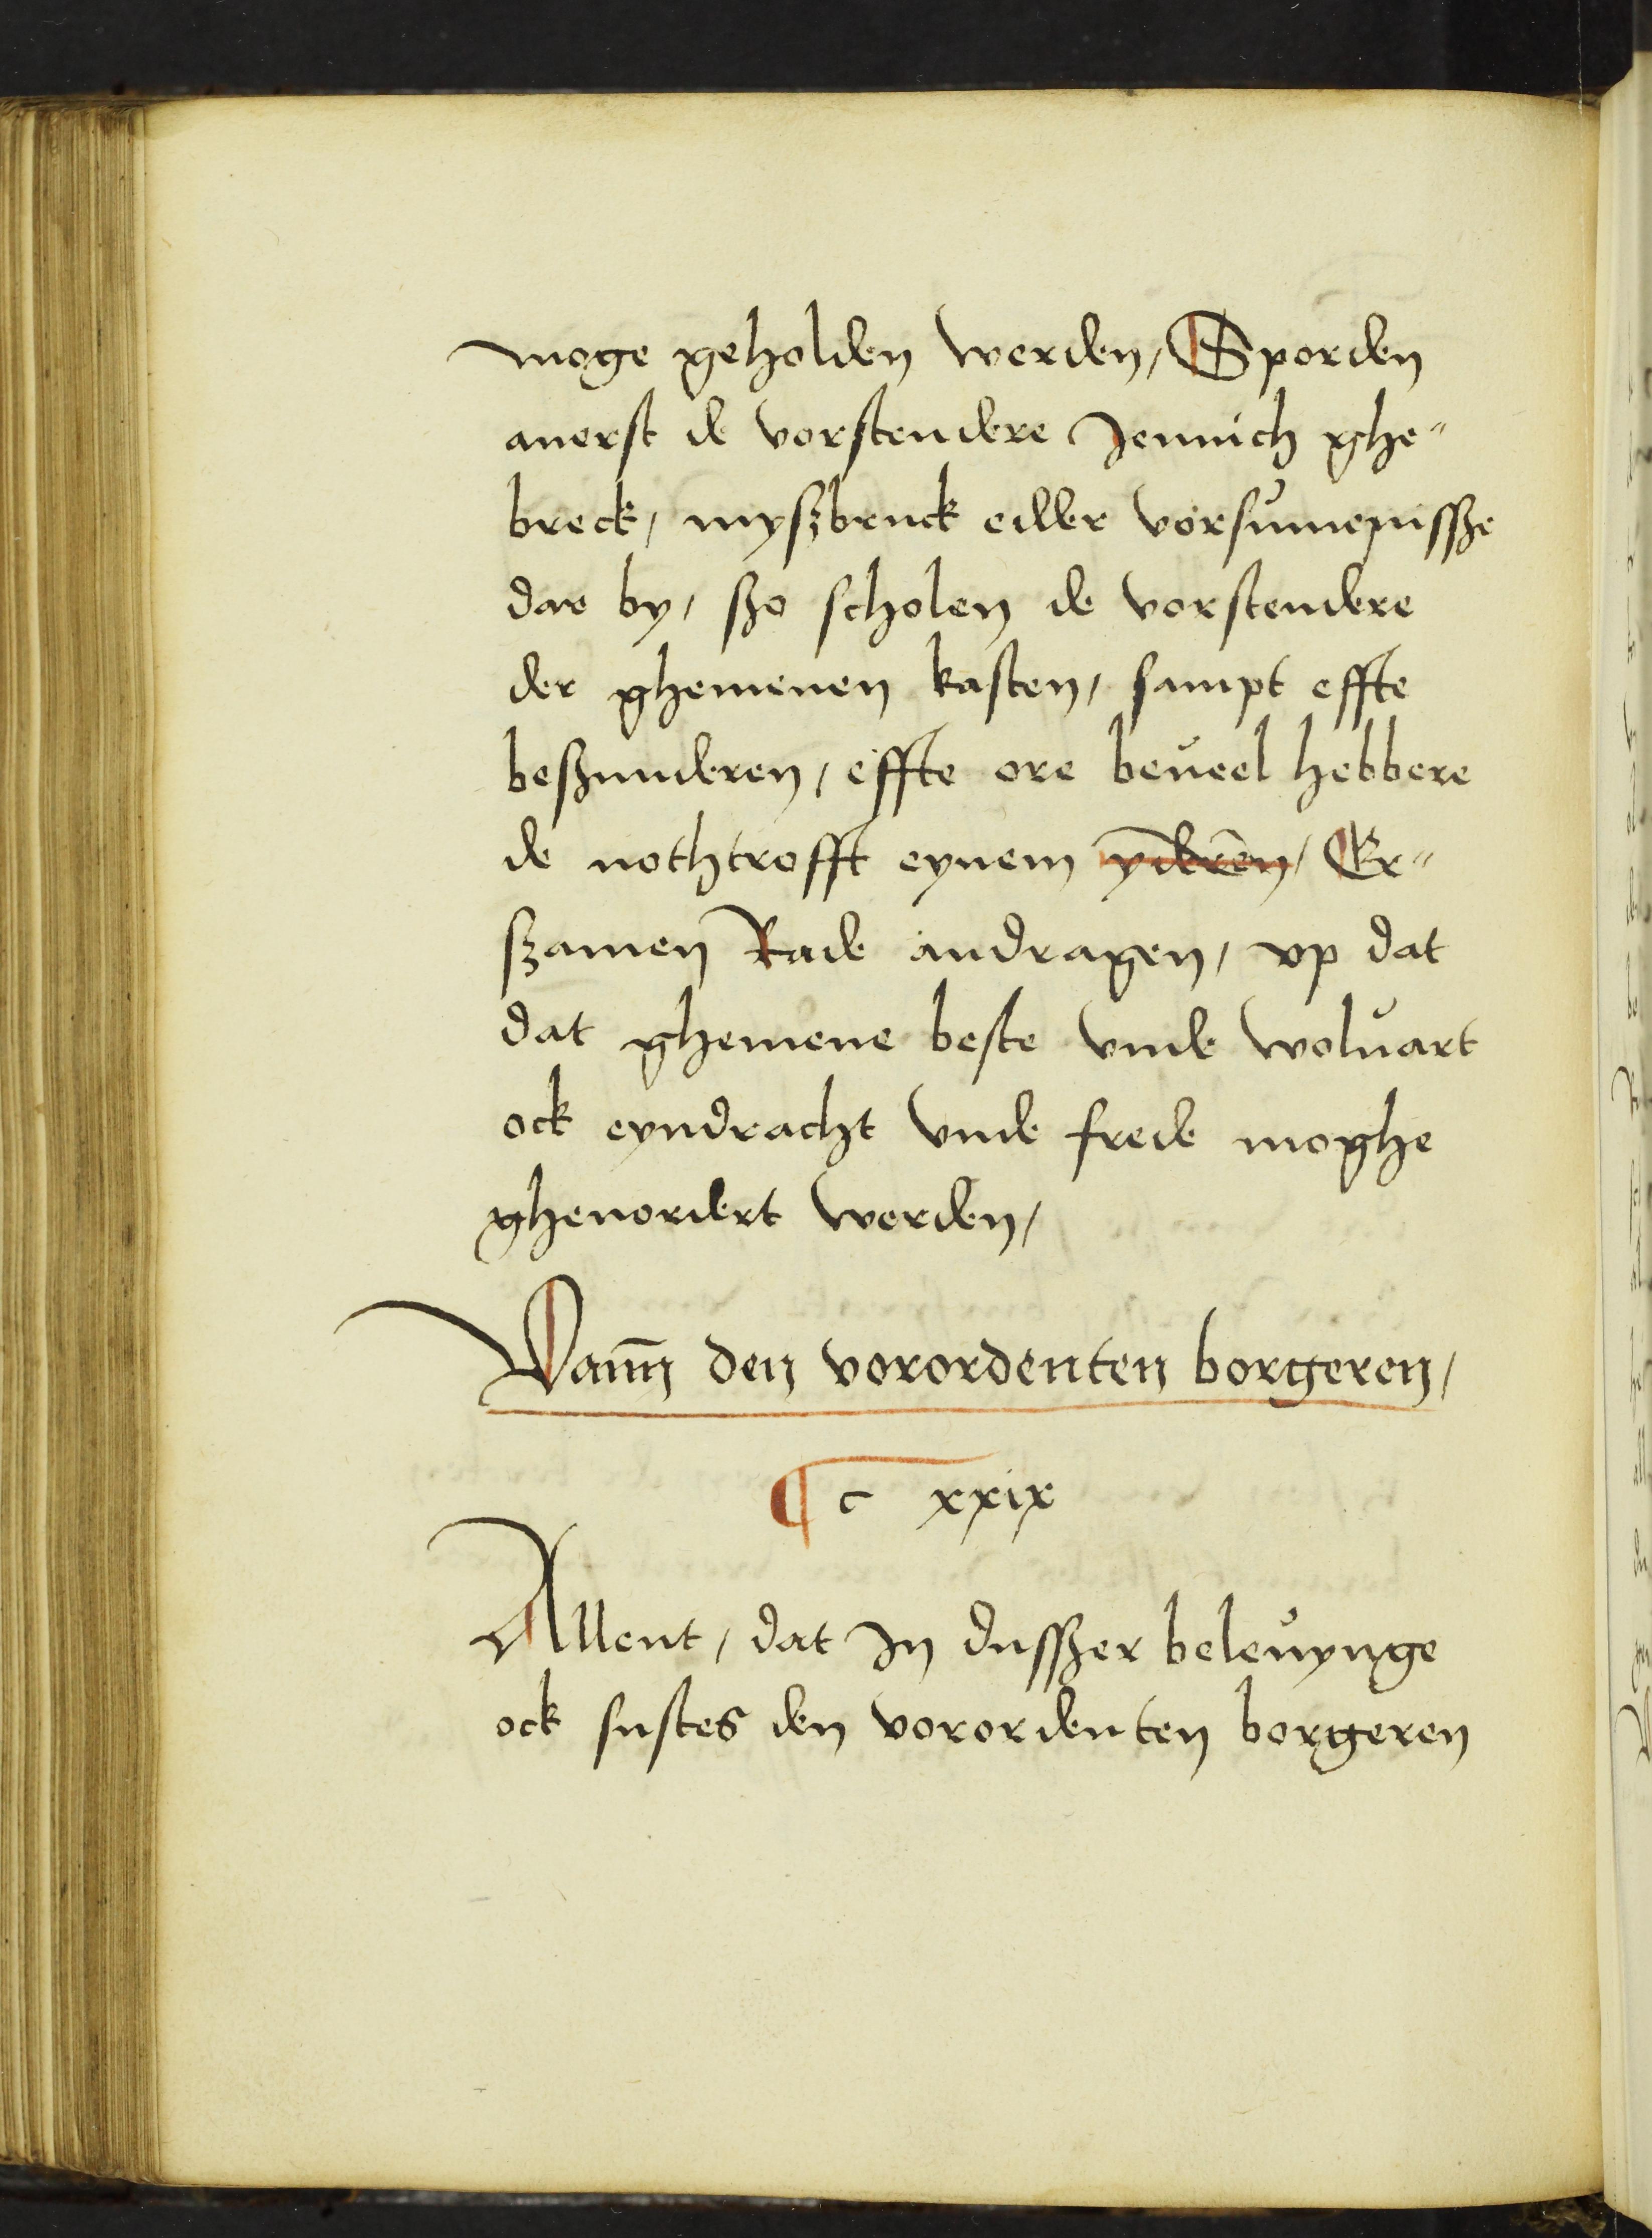 moge geholden werden, Sporden
auerst de vorstendere Jennich ghe"
breck, myszbruck edder vorsumenissze
dar by, szo scholen de vorstendere
der ghemenen kasten, sampt effte
beszunderen, effte ore beueel hebbere
de nothtrofft eynem yderen, Er"
szamen Rade andragen, vp dat
dat ghemene beste vnde woluart
ock eyndracht vnde frede moghe
gheuordert werden,
Vann den verordenten borgeren,
¶ c xxix
Allent, dat In dusszer beleuynge
ock sustes den verordenten borgeren